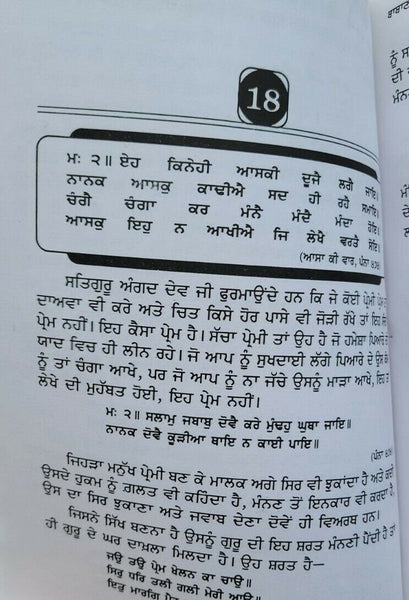 18
ਮਃ ੨॥ ਏਹ ਕਿਨੇਹੀ ਆਸਕੀ ਦੂਜੈ ਲਗੈ ਜਾਇ।
ਨਾਨਕ ਆਸਕੁ ਕਾਂਢੀਐ ਸਦ ਹੀ ਰਹੈ ਸਮਾਇ।
ਚੰਗੈ ਚੰਗਾ ਕਰ ਮੰਨੈ ਮੰਦੈ ਮੰਦਾ ਹੋਇ।
ਆਸਕੁ ਇਹੁ ਨ ਆਖੀਐ ਜਿ ਲੇਖੈ ਵਰਤੈ ਸੋਇ।
(ਆਸਾ ਕੀ ਵਾਰ, ਪੰਨਾ
ਸਤਿਗੁਰੂ ਅੰਗਦ ਦੇਵ ਜੀ ਫੁਰਮਾਉਂਦੇ ਹਨ ਕਿ ਜੇ ਕੋਈ ਪ੍ਰੇਮੀ
ਦਾਅਵਾ ਵੀ ਕਰੇ ਅਤੇ ਚਿਤ ਕਿਸੇ ਹੋਰ ਪਾਸੇ ਵੀ ਜੋੜੀ ਰੱਖੇ ਤਾਂ ਇਹ
ਪ੍ਰੇਮ ਨਹੀਂ। ਇਹ ਕੈਸਾ ਪ੍ਰੇਮ ਹੈ। ਸੱਚਾ ਪ੍ਰੇਮੀ ਤਾਂ ਉਹ ਹੈ ਜੋ ਹਮੇਸ਼ਾ ਪਿਆਰੇ ਦੀ
ਯਾਦ ਵਿਚ ਹੀ ਲੀਨ ਰਹੇ। ਜੋ ਆਪ ਨੂੰ ਸੁਖਦਾਈ ਲੱਗੇ ਪਿਆਰੇ ਦੇ ਉਸ
ਨੂੰ ਤਾਂ ਚੰਗਾ ਆਖੇ, ਪਰ ਜੋ ਆਪ ਨੂੰ ਨਾ ਜੱਚੇ ਉਸਨੂੰ ਮਾੜਾ ਆਖੇ, ਇਹ ਤਾਂ
ਲੇਖੇ ਦੀ ਮੁਹੱਬਤ ਹੋਈ, ਇਹ ਪ੍ਰੇਮ ਨਹੀਂ।
ਮਃ ੨॥ ਸਲਾਮੁ ਜਬਾਬੁ ਦੋਵੈ ਕਰੇ ਮੁੰਢਹੁ ਘੁਥਾ ਜਾਇ॥
ਨਾਨਕ ਦੋਵੈ ਕੂੜੀਆ ਥਾਇ ਨ ਕਾਈ ਪਾਇ॥
(ਪੰਨਾ
ਜਿਹੜਾ ਮਨੁੱਖ ਪ੍ਰੇਮੀ ਬਣ ਕੇ ਮਾਲਕ ਅਗੇ ਸਿਰ ਵੀ ਝੁਕਾਂਦਾ ਹੈ ਅਤੇ ਕਦੇ
ਉਸਦੇ ਹੁਕਮ ਨੂੰ ਗ਼ਲਤ ਵੀ ਕਹਿੰਦਾ ਹੈ, ਮੰਨਣ ਤੋਂ ਇਨਕਾਰ ਵੀ ਕਰਦਾ ਹੈ,
ਉਸ ਦਾ ਸਿਰ ਝੁਕਾਣਾ ਅਤੇ ਜਵਾਬ ਦੇਣਾ ਦੋਵੇਂ ਹੀ ਵਿਅਰਥ ਹਨ।
ਜਿਸਨੇ ਸਿੱਖ ਬਣਨਾ ਹੈ ਉਸਨੂੰ ਗੁਰੂ ਦੀ ਇਹ ਸ਼ਰਤ ਮੰਨਣੀ ਪੈਂਦੀ ਹੈ ਤਾਂ
ਹੀ ਗੁਰੂ ਦੇ ਘਰ ਦਾਖ਼ਲਾ ਮਿਲਦਾ ਹੈ। ਉਹ ਸ਼ਰਤ ਹੈ—
ਜਉ ਤਉ ਪ੍ਰੇਮ ਖੇਲਨ ਕਾ ਚਾਉ॥
ਸਿਰੁ ਧਰਿ ਤਲੀ ਗਲੀ ਮੇਰੀ ਆਉ॥
ਇਤੁ ਮਾਰਗਿ